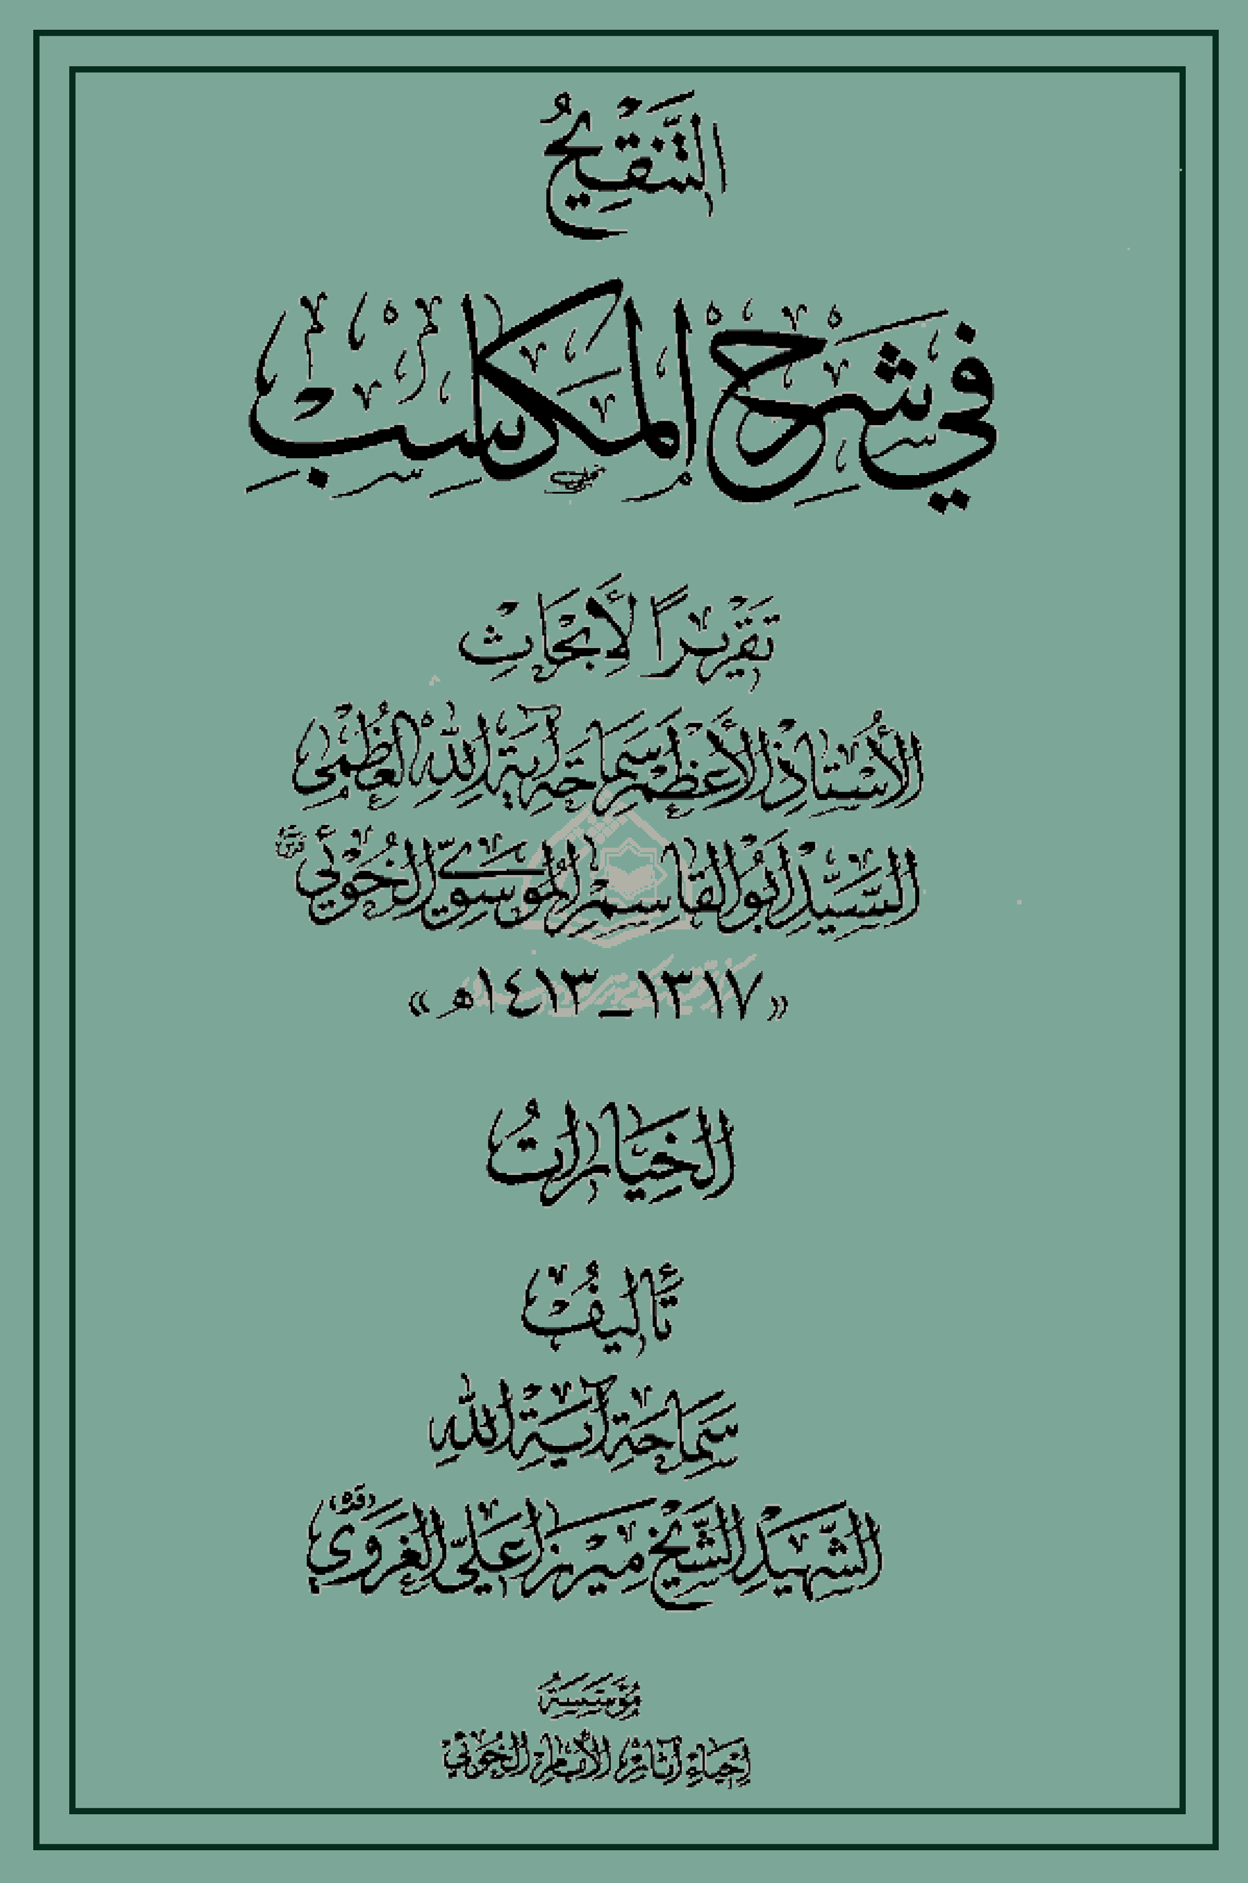 التَّنقِيحُ
في شَرحِ المَكاسِبِ
تَقريراً لأَبحَاثِ
الأُستَاذِ الأَعظَمِ سَمَاحَةِ آيَةِ اللهِ العُظمى
السَيِّد أبُو القَاسِم المُوسَوِيّ الخُوئي
«١٣١٧ـ١٤١٣هـ»
الخِيَارَاتُ
تَأليفُ
سَمَاحَةِ آيَةِ اللهِ
الشَّهِيدِ الشَّيخِ مِيرزَا عَلِيّ الغَرَوِيّ (قده)
مُؤَسَّسَةُ
إحيَاءِ آثَارِ الإمَامِ الخُوئي